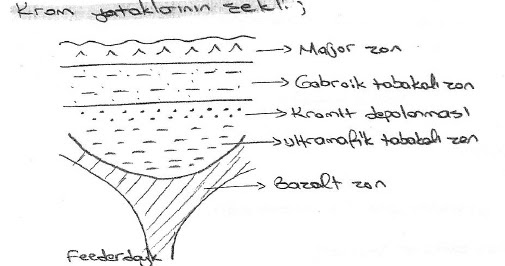 Krom yataklarının şekli ;
Major zon
Gabroik tabakalı zon
Kromit depolanması
ultramafik tabakalı zon
Bazalt zon
Feederdayk